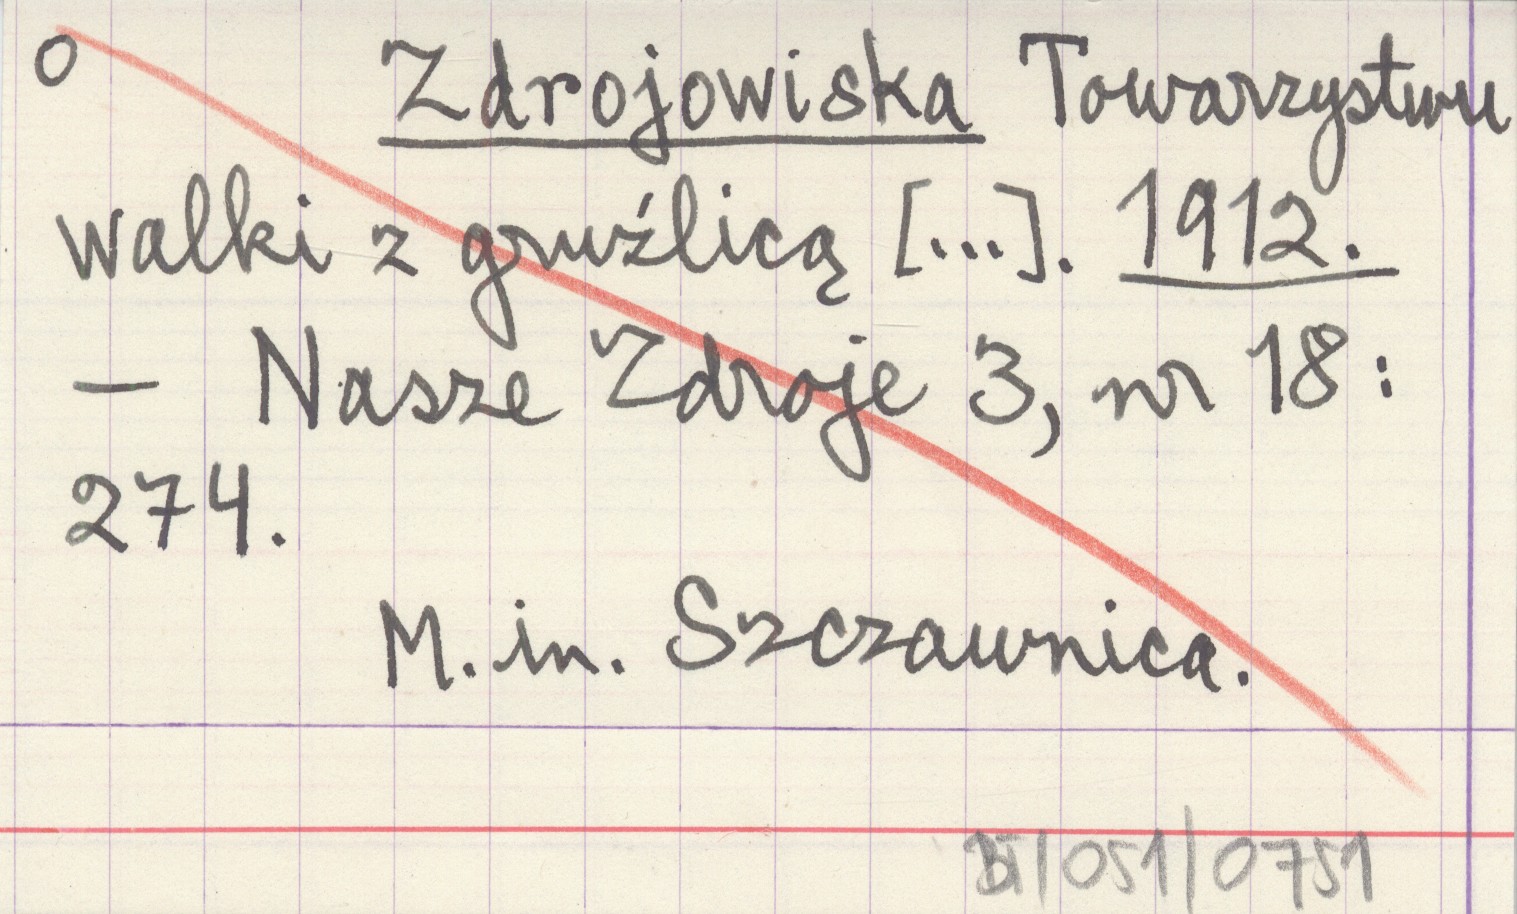 o Zdrojowiska Towarzystwu
walki z gruźlicą [...]. 1912.
— Nasze Zdroje 3, nr 18:
274.
M. in. Szczawnica.
BT/051/0751